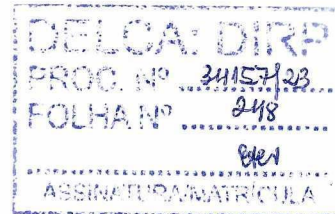 DELCA: DIRP
PROC. Nº 34157/23
FOLHA Nº 248
ASSINATURA/MATRÍCULA